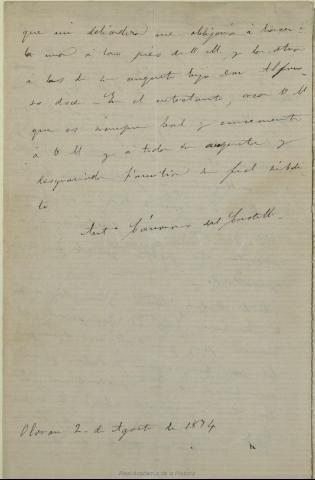 que mi
me obligaria à hacer:
lo uno à los pies de V M, y lo otro
à los de su augusto hijo Don Alfon-
so doce – En el entretanto, crea V M
que es siempre leal y
à V M y à toda su augusta y
desgraciada familia su fiel subdi
to
Ant.º Cánovas del Castillo
2 de Agosto de 1874
Real Academia de la Historia